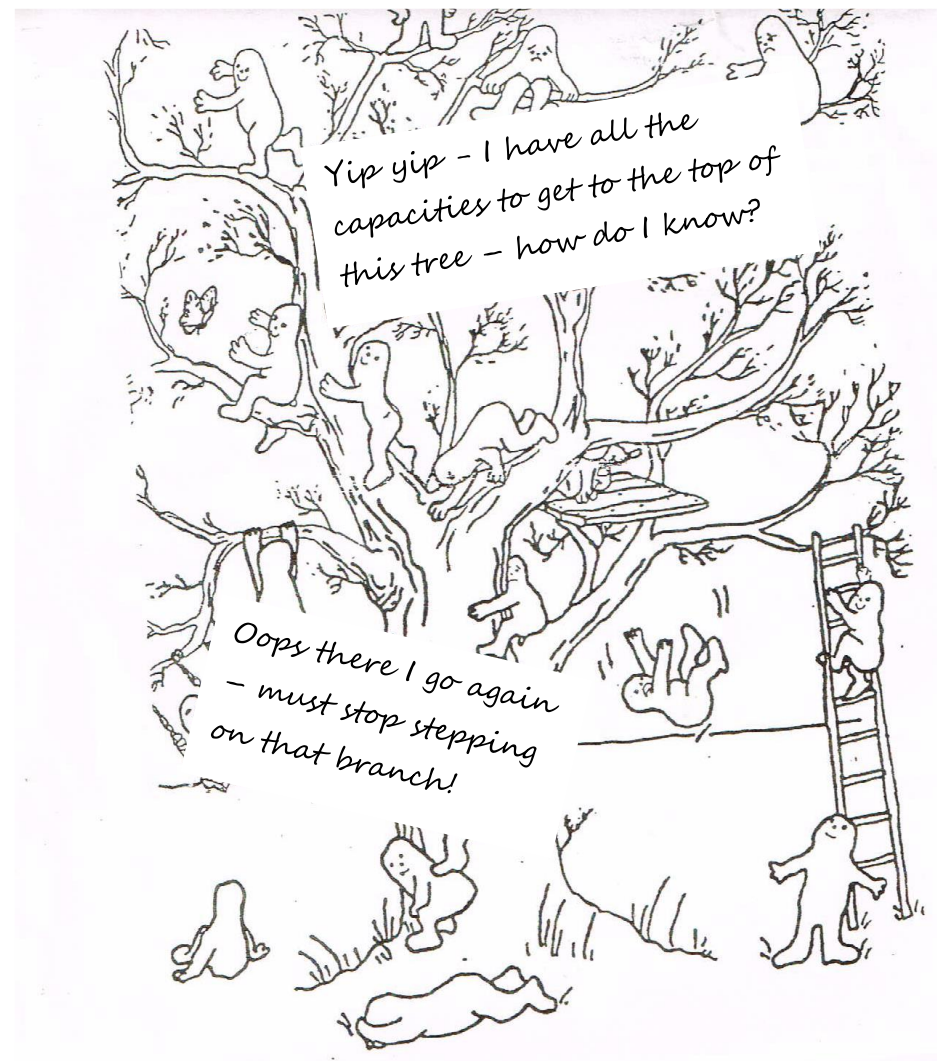 Yip yip – I have all the
capacities to get to the top of
this tree – how do I know?
Oops there I go again
– must stop stepping
on that branch!